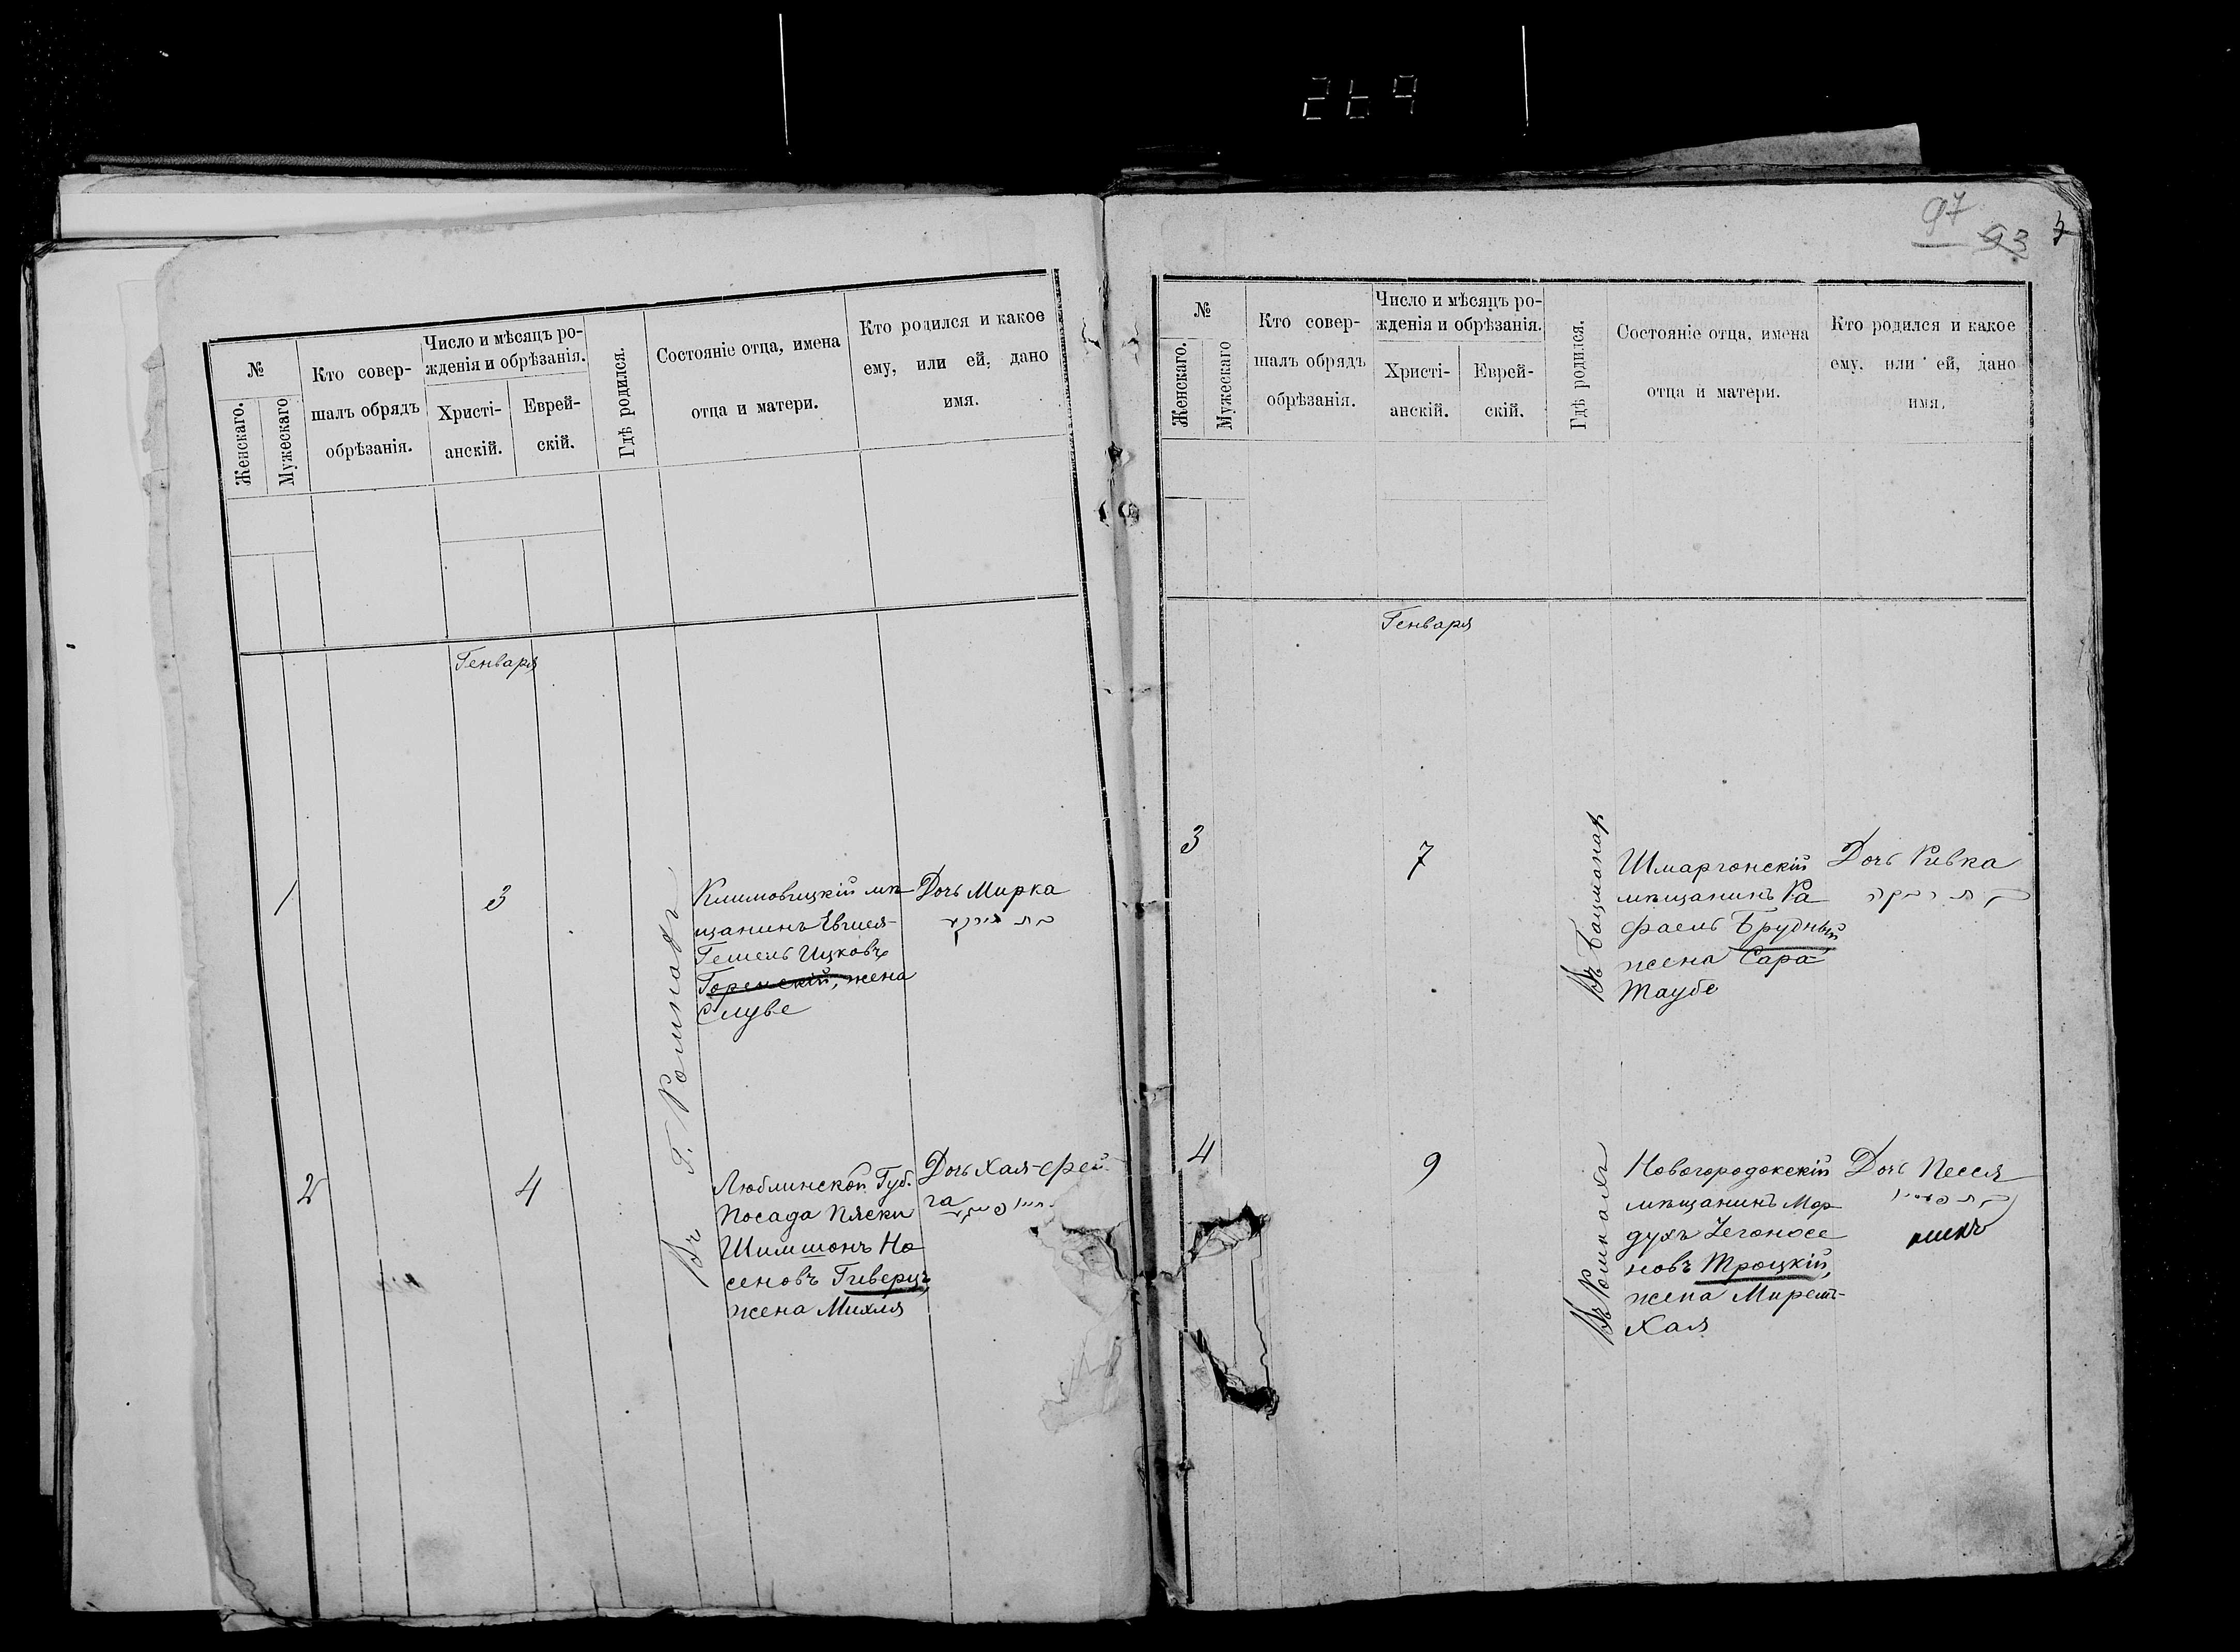 269
№
Женскаго.
Мужескаго
Кто совер-
шалъ обрядъ
обрѣзанія.
Число и мѣсяцъ ро-
жденія и обрѣзанія.
Христі-
анскій.
Еврей-
скій.
Гдѣ родился.
Состояніе отца, имена
отца и матери.
Кто родился и какое
ему, или ей, дано
имя.
Генваря
1
3
Въ г. Ромнахъ
Климовицкій мѣ-
щанинъ Евшея-
Гешель Ицковъ
жена
Слуве
Дочь Мирка
2
4
Люблинской Губ.
посада Пяски
Шимшонъ Но
сеновъ Гиверцъ
жена Михля
Дочь Хая-Фей
га
97
93
№
Женскаго.
Мужескаго
Кто совер-
шалъ обрядъ
обрѣзанія.
Число и мѣсяцъ ро-
жденія и обрѣзанія.
Христі-
анскій.
Еврей-
скій.
Гдѣ родился.
Состояніе отца, имена
отца и матери.
Кто родился и какое
ему, или ей, дано
имя.
Генваря
3
7
Въ
Шмаргонскій
мѣщанинъ Ра
фаель Брудный
жена Сара
Таубе
Дочь Ривка
4
9
Въ Ромнахъ
Новогородокскій
мѣщанинъ Мор
духъ
новъ Троцкій,
жена
Хая
Дочь Песся